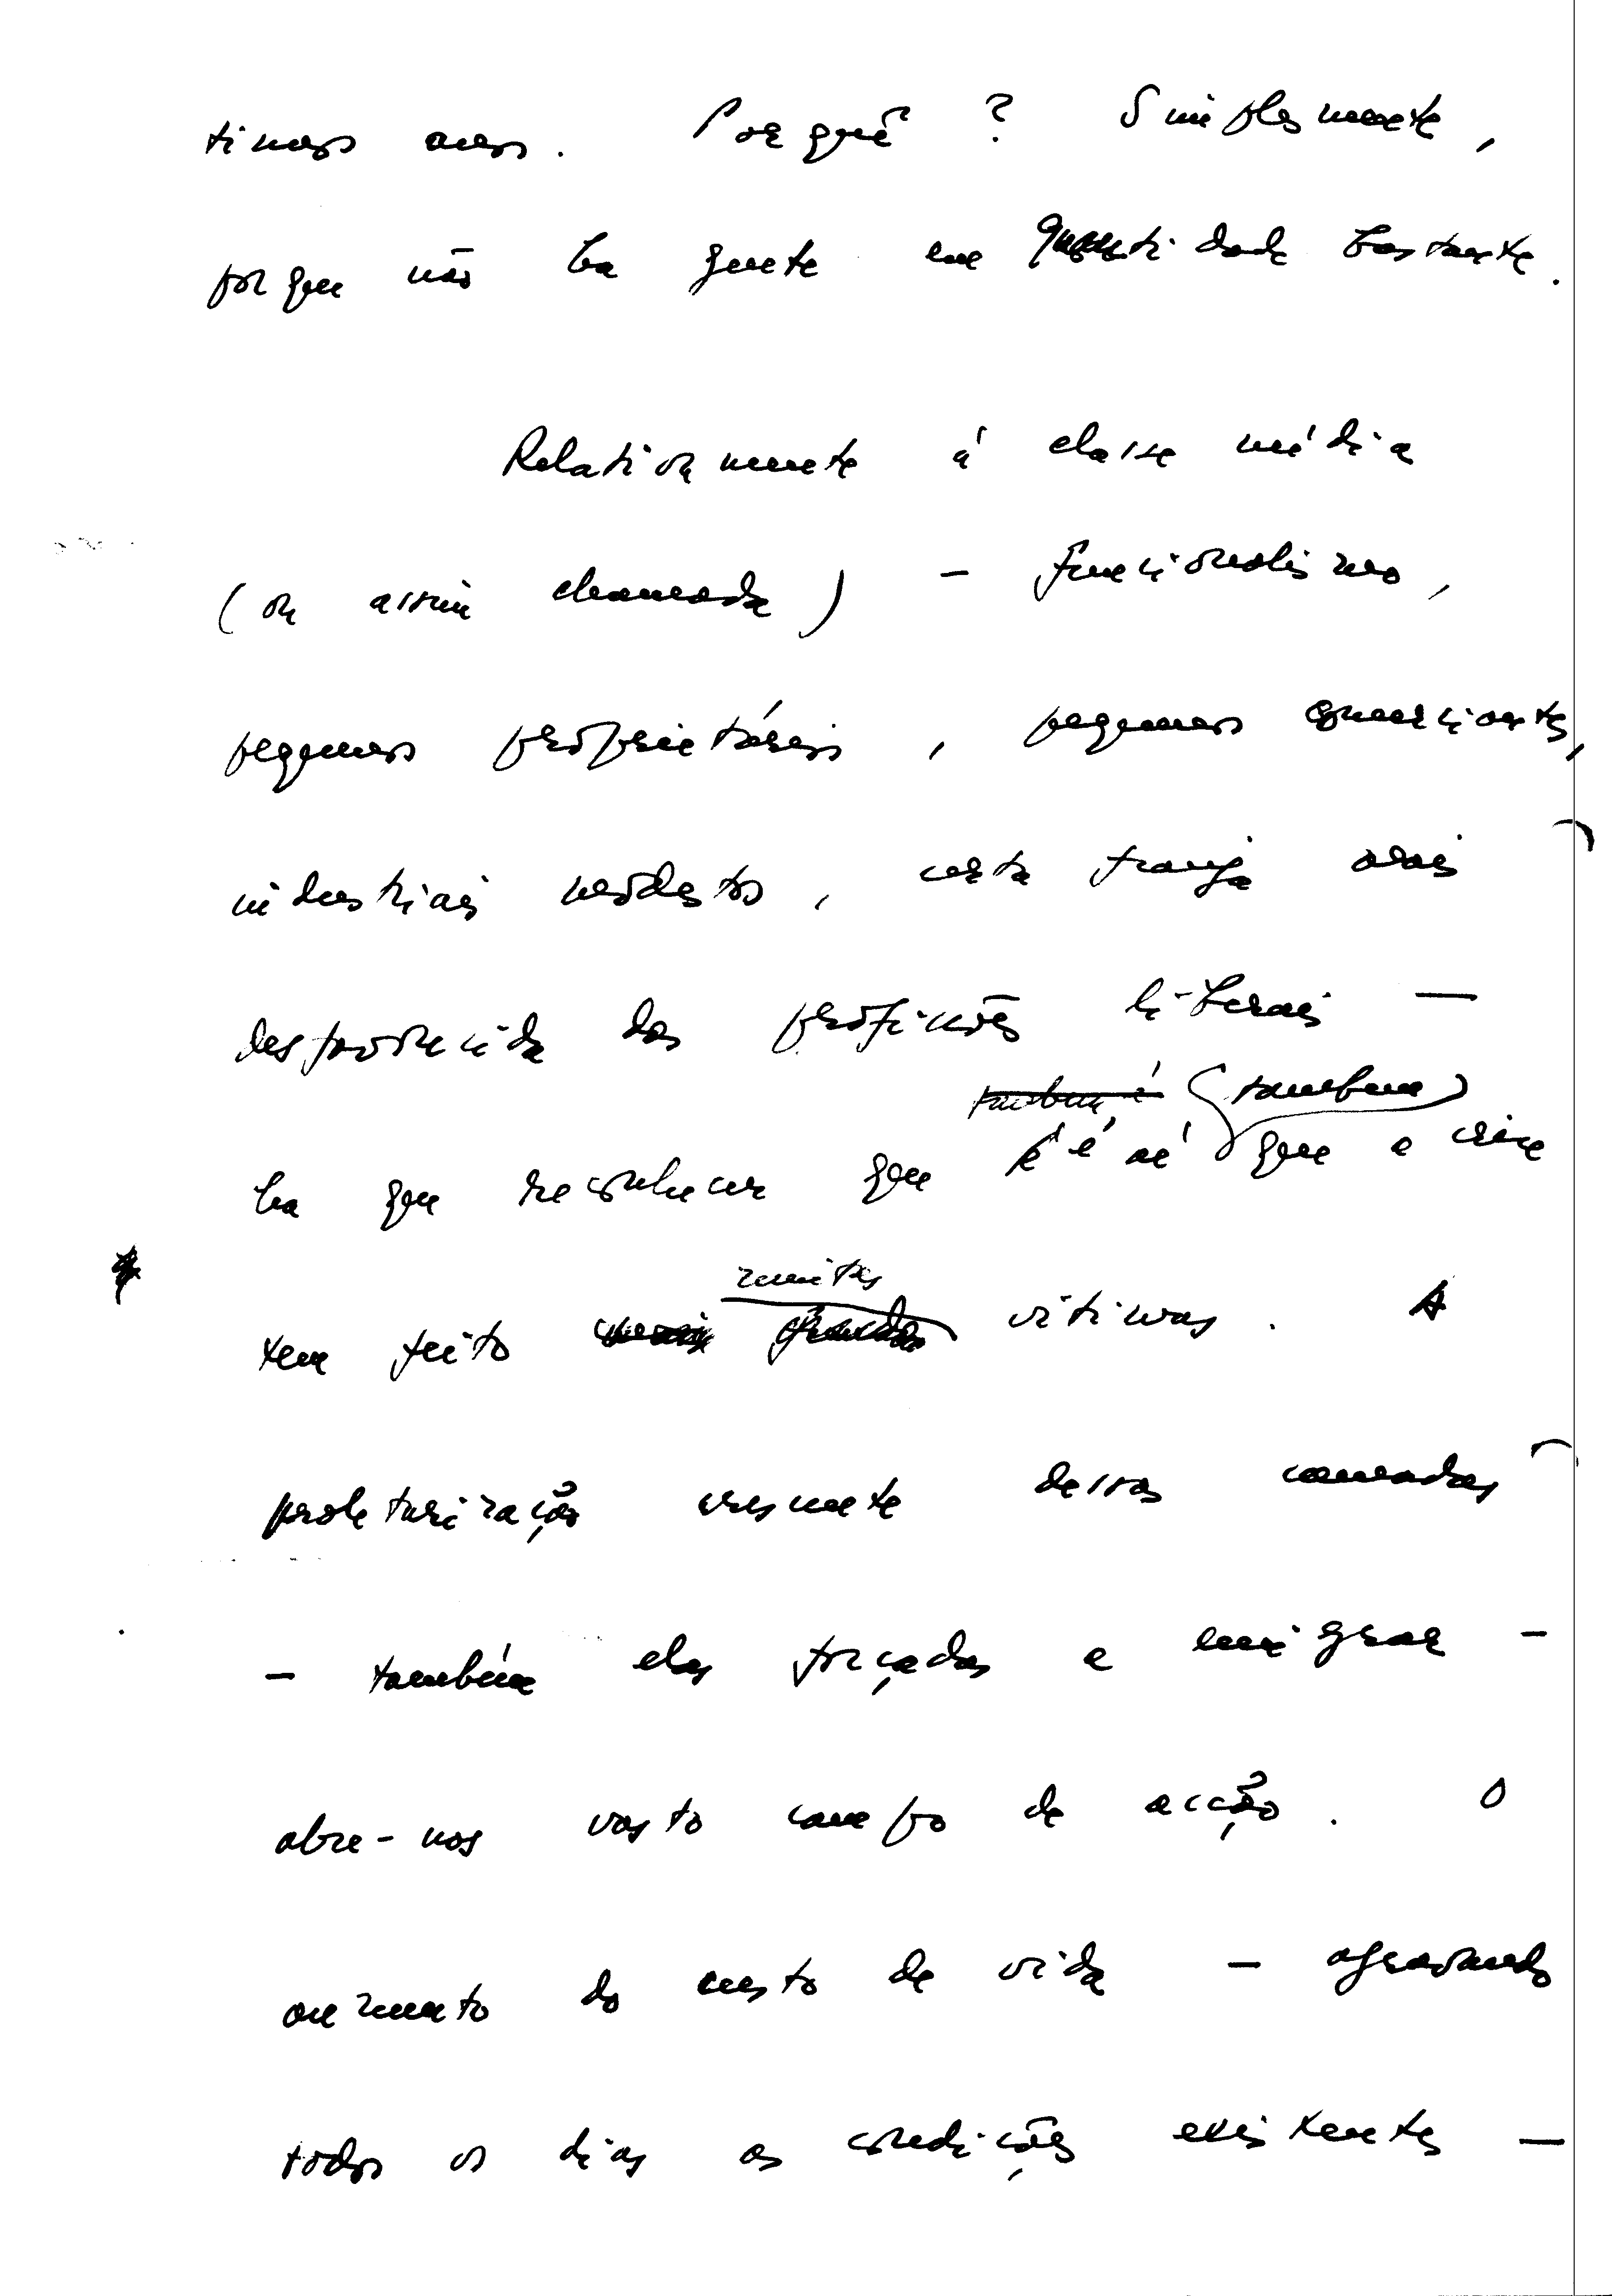 timos anos. Porquê? Simplesmente,
porque não ha gente em quantidade bastante.
Relativamente á classe média
(ou assim chamada) - funcionalismo,
pequenos proprietários, pequenos comerciantes,
industriais modestos, certa franja mais
desfavorecida das profissões liberais —
também é (tambem)
ha que reconhecer que é é aí que a crise
muitas
tem feito vitimas. A
proletarização crescente dessas camadas
- também elas forçadas a emigrar -
abre-nos vasto campo de acção. O
aumento do custo de vida - agravando
todos os dias as condições existentes —